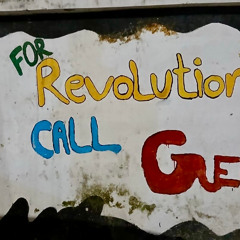 FOR
Revolution
CALL
GUE